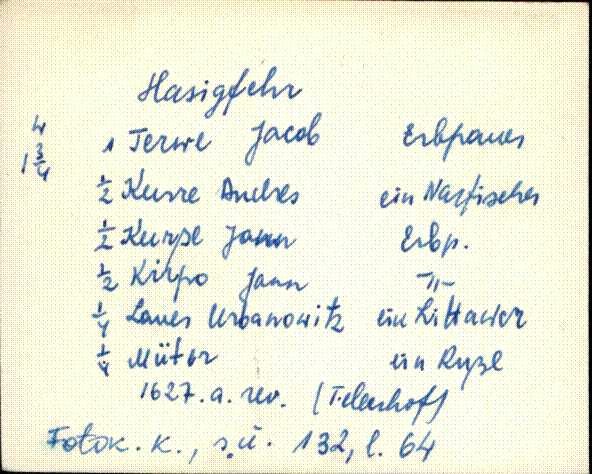 Hasigfehr
4 1 Terwe Jacob Erbpauer
1 3/4 1/2 Kurre Andres ein
1/2 Kurpe Jann Erbp.
1/2 Kirpo Jann -"-
1/4 Laues Urbanowitz ein Littawer
1/4 Mütor ein Ryße
1627. a. rev. (Tiesenhof)
Fotok. k., s.ü. 132, l. 64